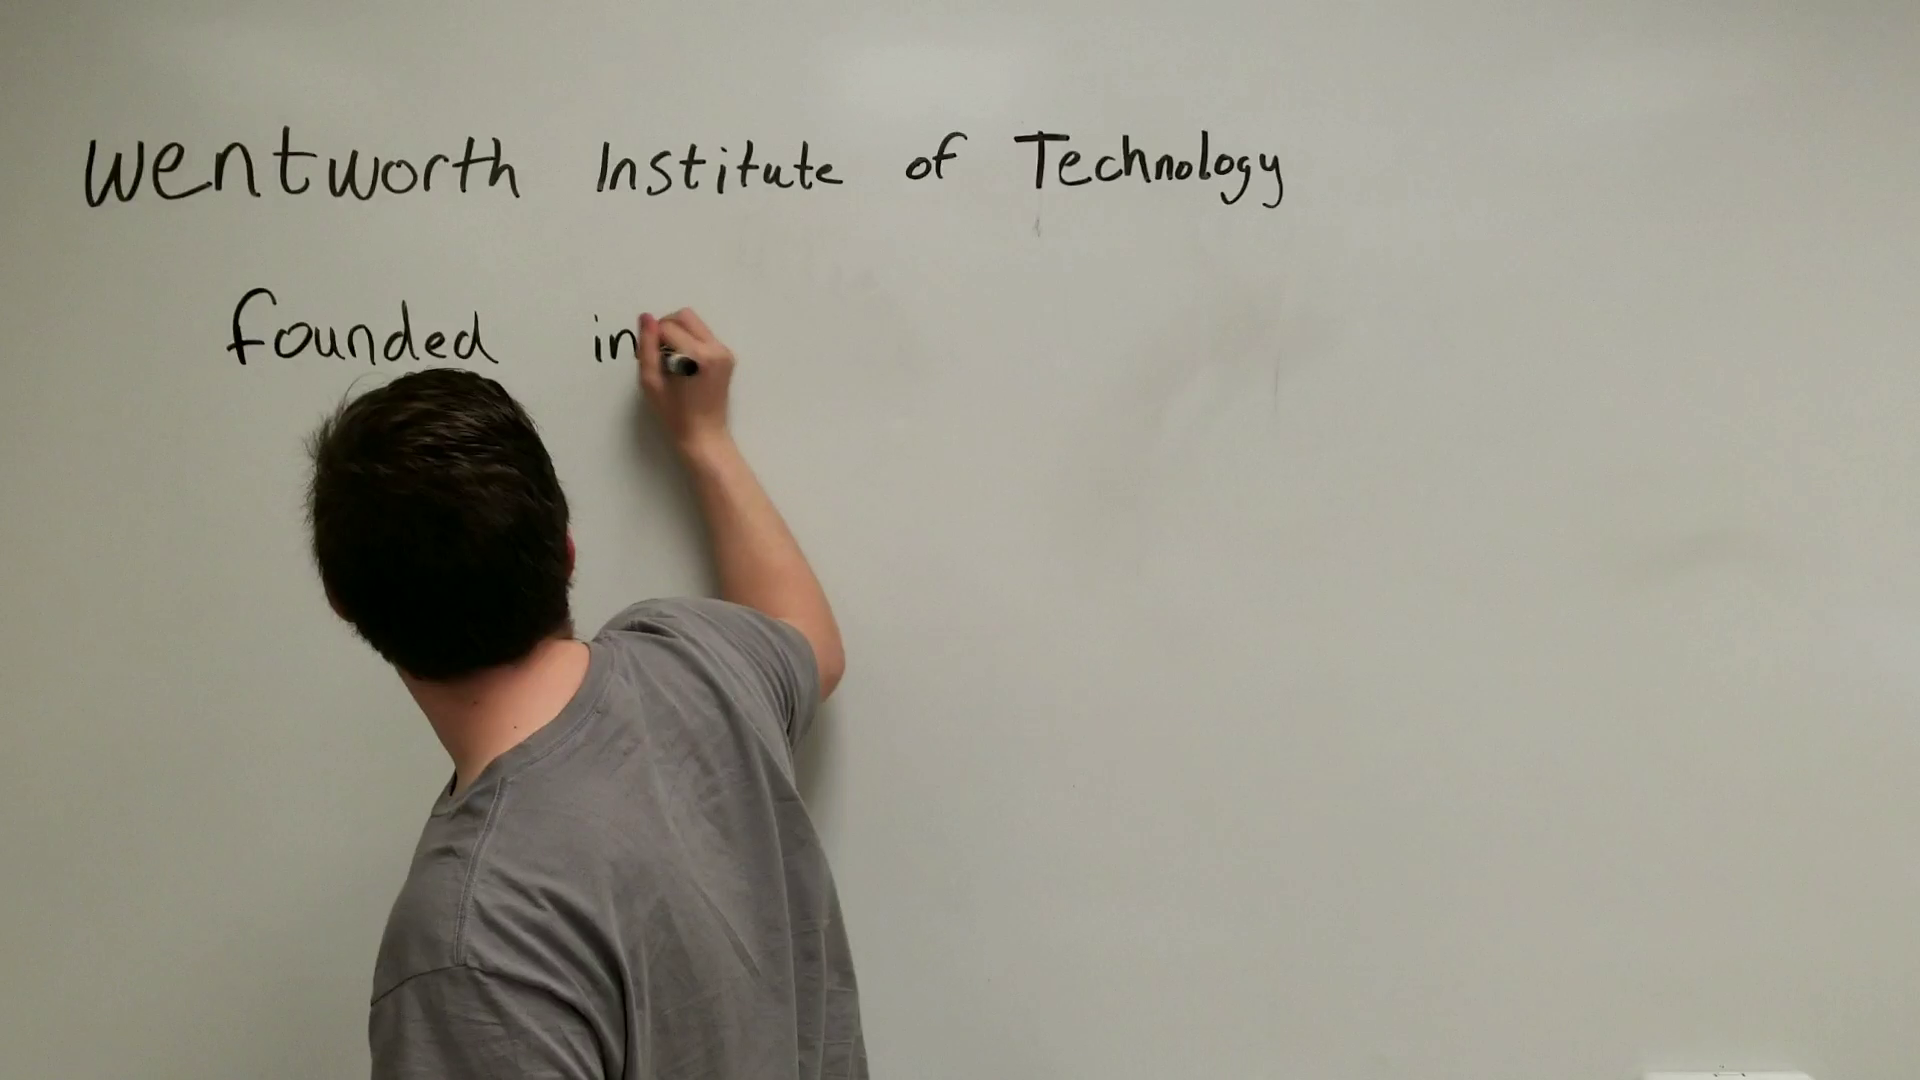 Wentworth Institute of Technology
founded in